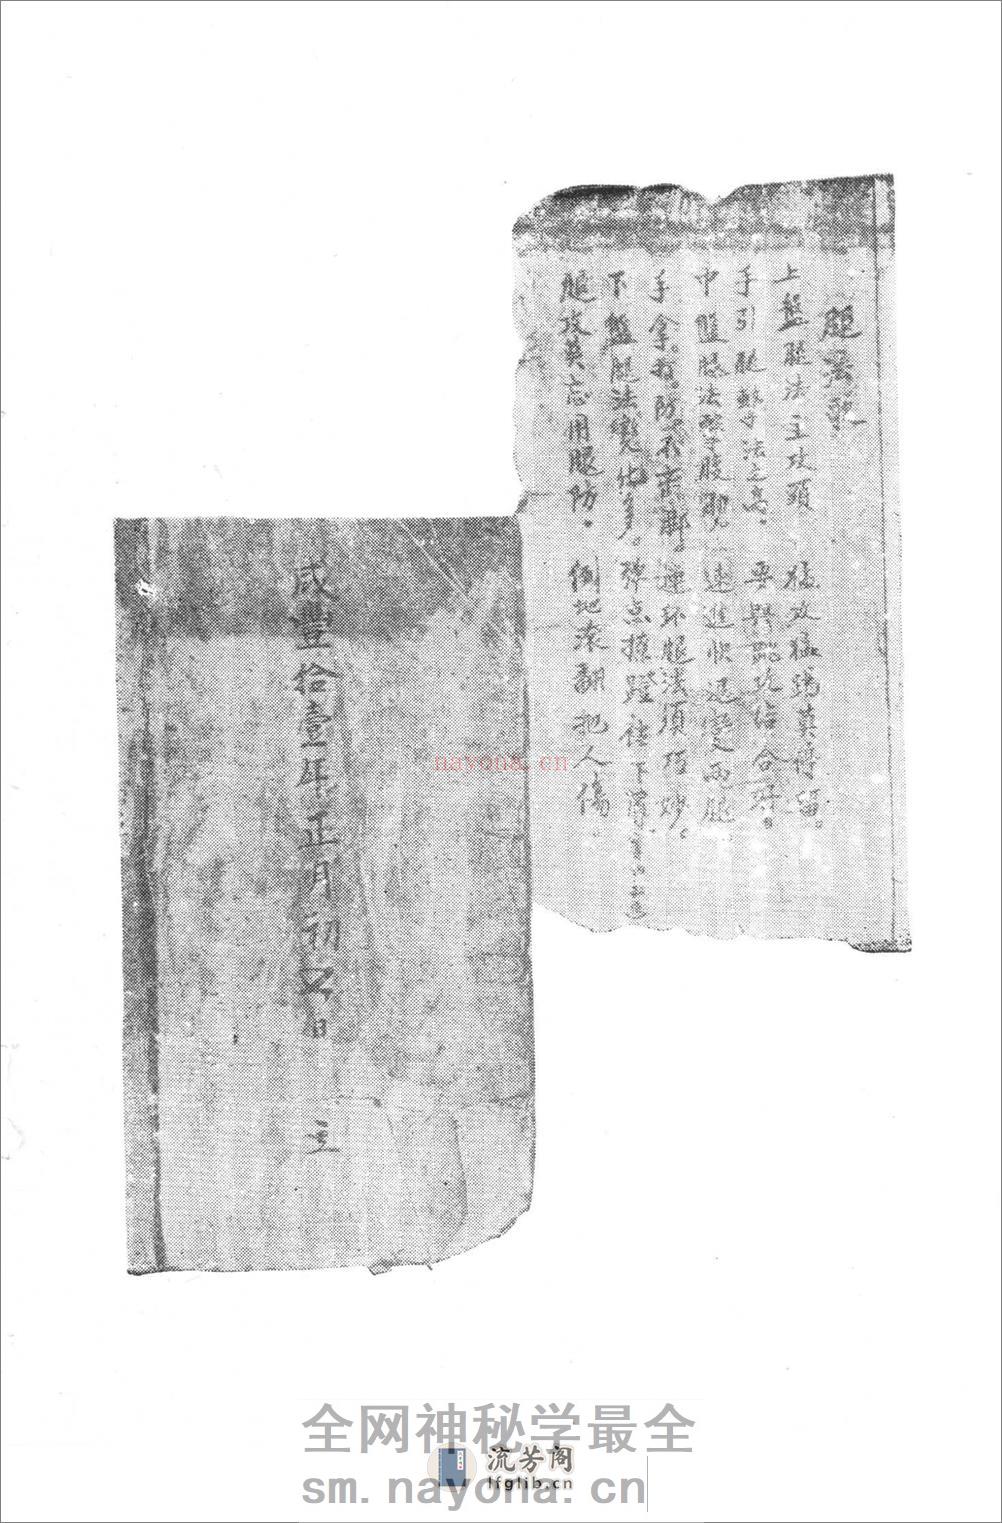 腿法歌
上盤腿法主攻頭 猛攻猛踢莫停留。
手引腿 法之高。要與跳 結合好。
中盤腿法 腹 速進快退變兩腿
手拿打。防 連环腿法須巧妙。
下盤腿法變化多。彈点 蹬往下
腿攻莫忘用腿防。倒地滚翻把人傷
咸豐拾壹年正月初 日 立
nayona.cn
全网神秘学最全
流芳阁
lfglib.cn
sm.nayona.cn